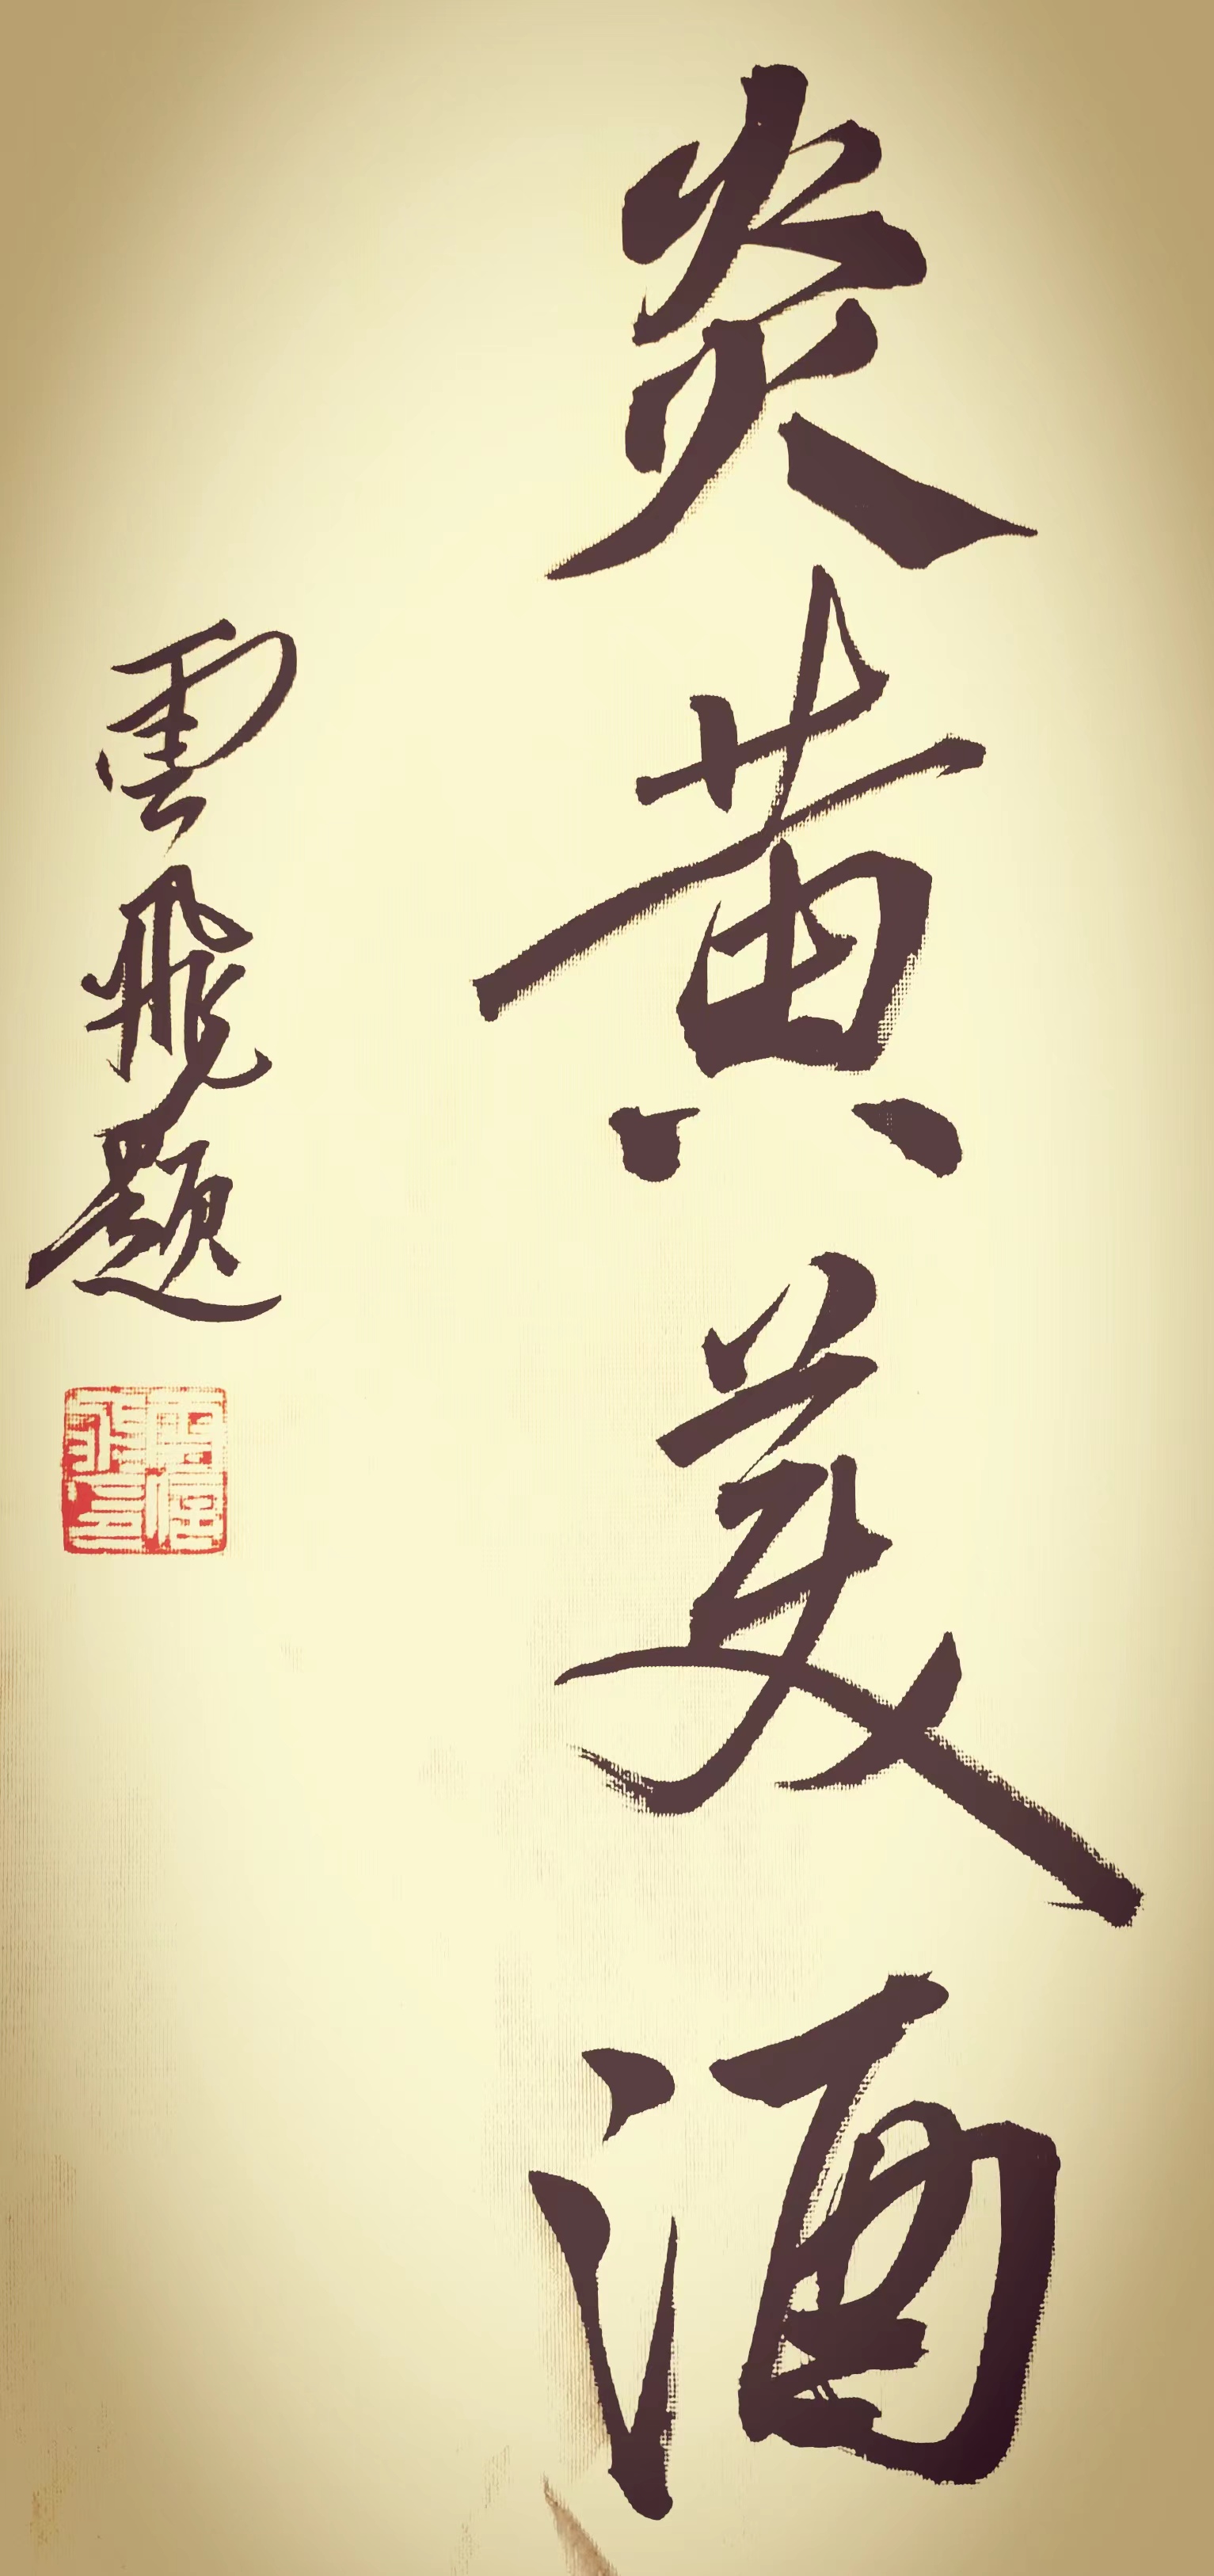 炎黄美酒
雲飛題